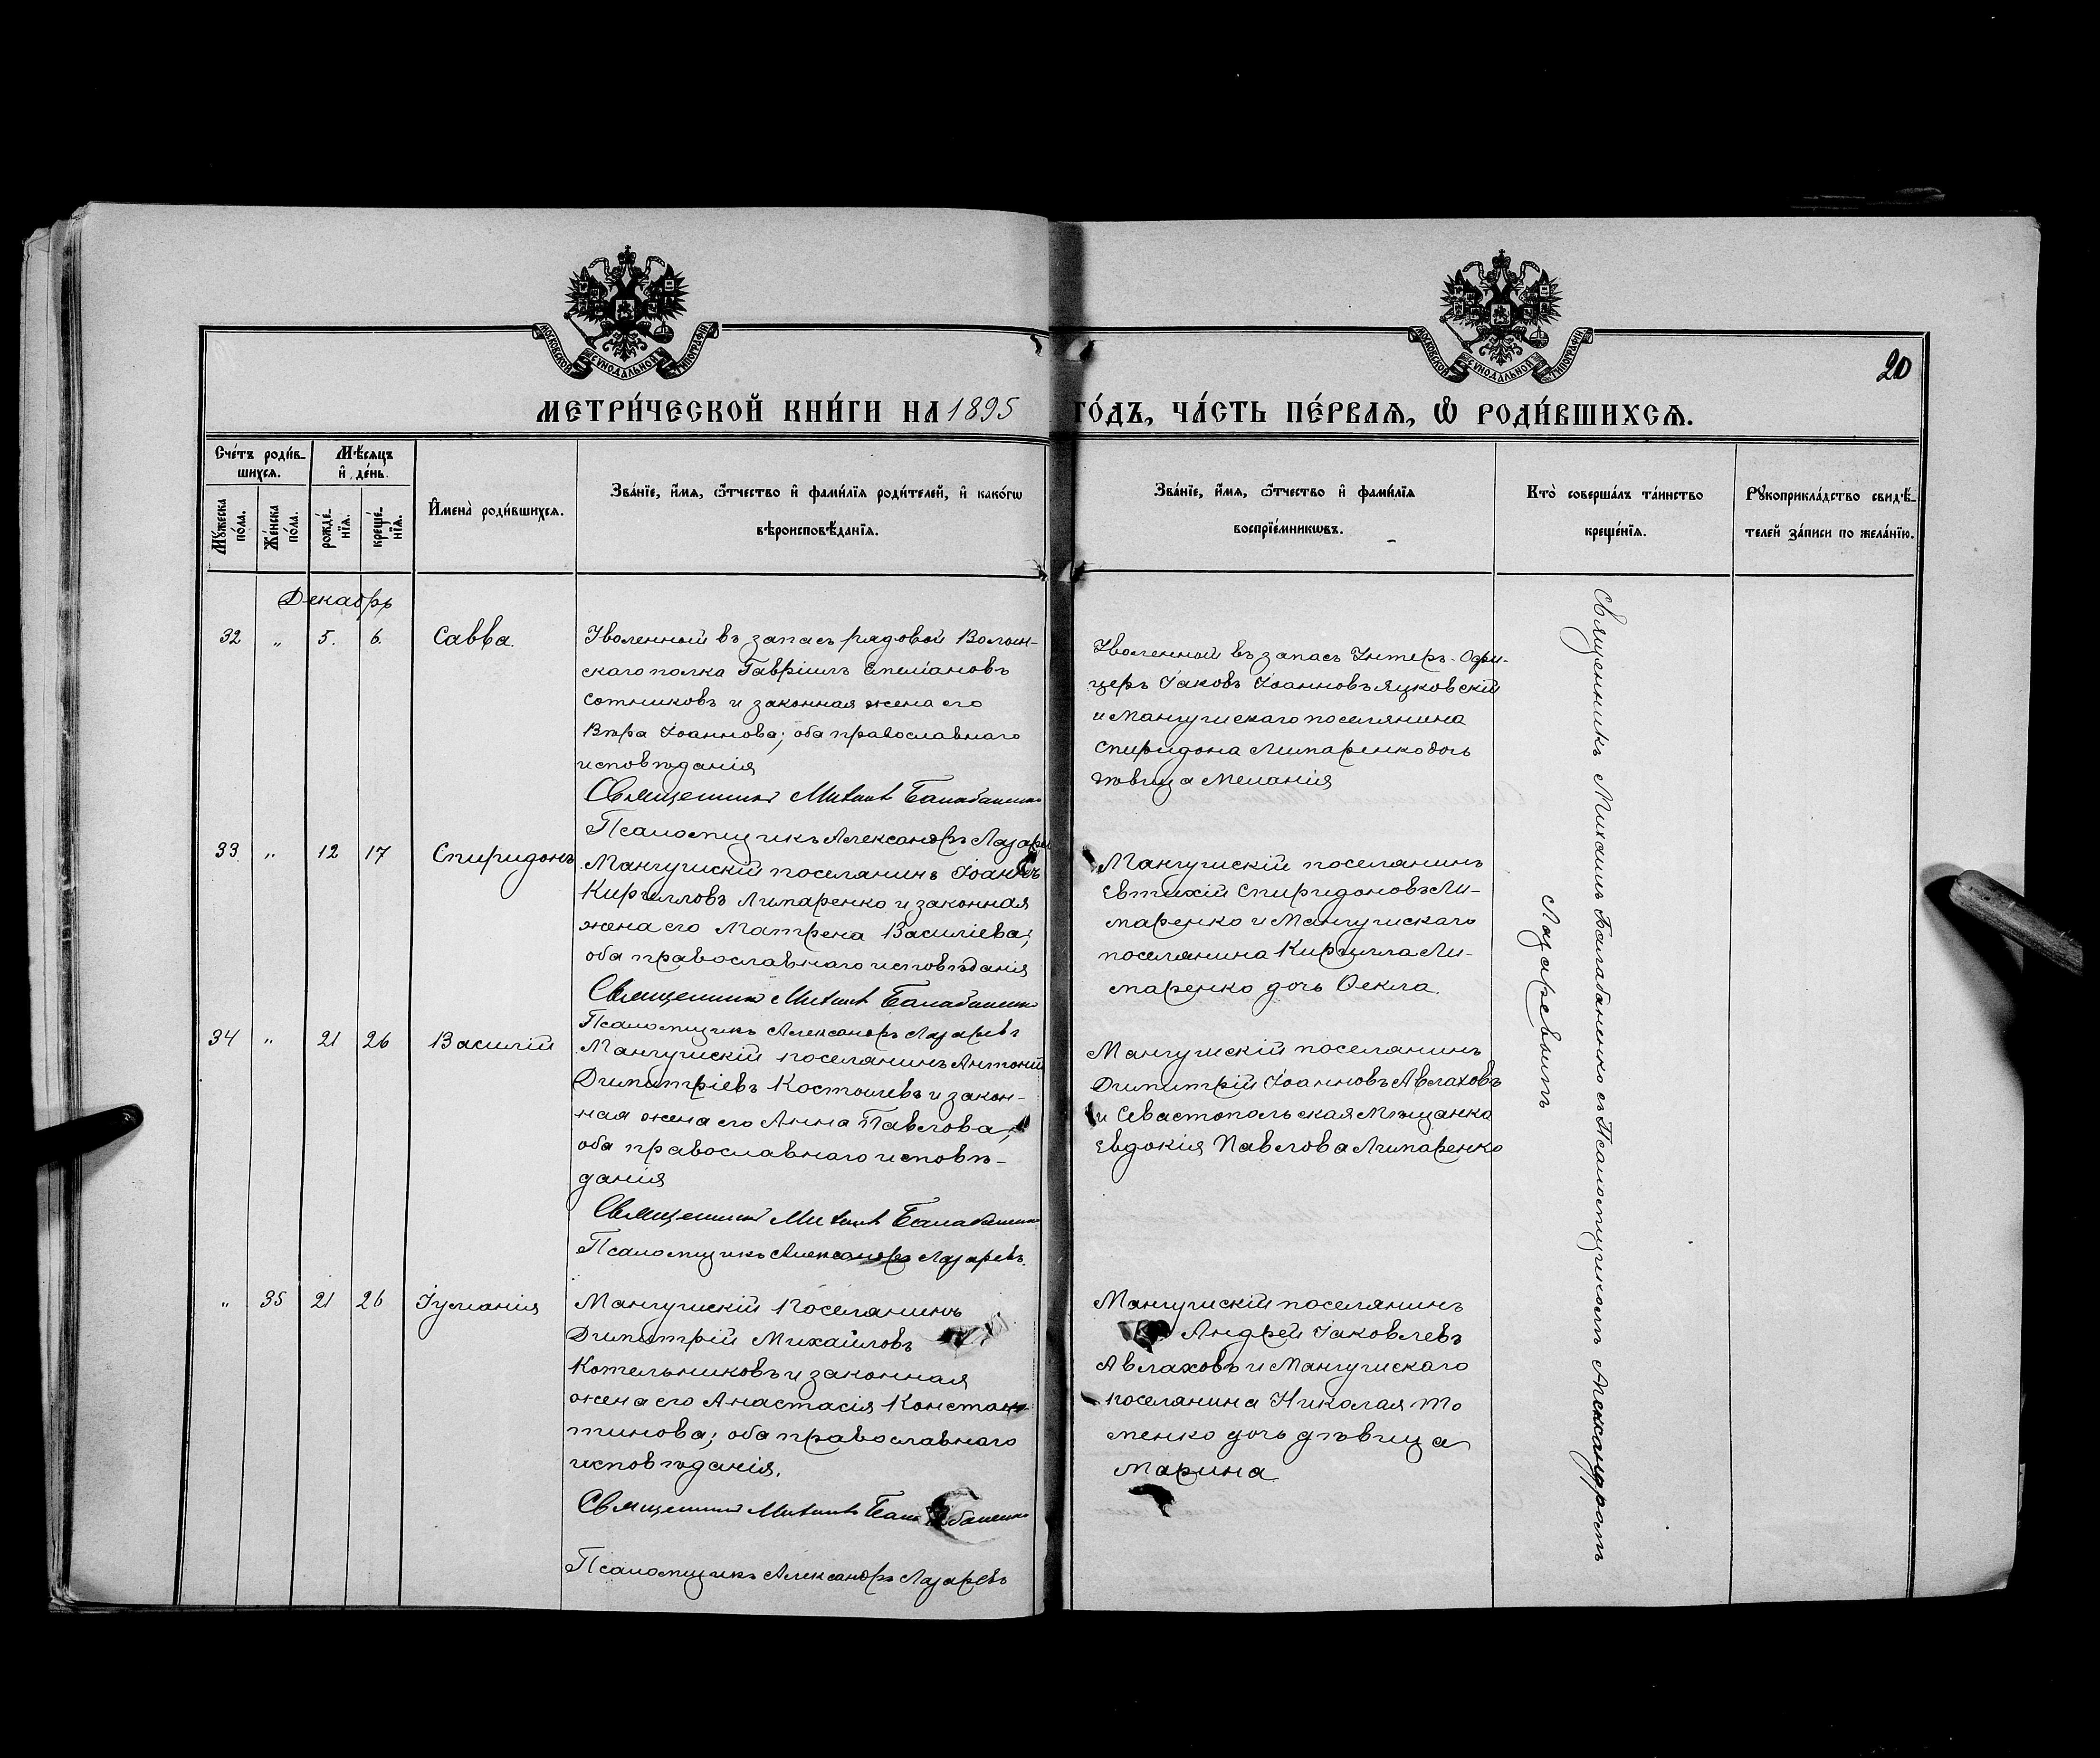 МОСКОВСКОЙ СѴНОДАЛЬНОЙ ТИПОГРАФІИ
МОСКОВСКОЙ СѴНОДАЛЬНОЙ ТИПОГРАФІИ
20
МЕТРИ́ЧЕСКОЙ КНИ́ГИ НА 1895 ГО́ДЪ, ЧА́СТЬ ПЕ́РВАѦ, Ѽ РОДИ́ВШИХСѦ.
Сче́тъ роди́в-
шихсѧ.
Мꙋ́жеска по́ла.
Же́нска по́ла.
Мѣ́сѧцъ
и҆ де́нь.
рожде́-нїѧ.
креще́-нїѧ.
И҆мена̀ роди́вшихсѧ.
Зва́нїе, и҆́мѧ, ѻ҆́тчество и҆ фами́лїѧ роди́телей, и҆ како́гѡ
вѣроисповѣ́данїѧ.
Зва́нїе, и҆́мѧ, ѻ҆́тчество и҆ фами́лїѧ
воспрїе́мникѡвъ.
Кто̀ соверша́лъ та́инство
креще́нїѧ.
Рꙋкоприкла́дство свидѣ́-
телей за́писи по жела́нїю.
Декабрь
32 „ 5. 6. Савва.
Уволенный въ запасъ рядовой Волын-
скаго полка Гавріилъ Емеліановъ
Сотниковъ и законная жена его
Вѣра Іоаннова; оба православнаго
исповѣданія
Священникъ Михаилъ Балабаненко
Псаломщикъ Александръ Лазарев
Уволенный въ запасъ Унтеръ-Офи-
церъ Іаковъ Іоанновъ Яцковскій
и Мангушскаго поселянина
Спиридона Лимаренко дочь
дѣвица Меланія
33 „ 12 17 Спиридонъ
Мангушскій поселянинъ Іоаннъ
Кирилловъ Лимаренко и законная
жена его Матрена Василіева;
оба православнаго исповѣданія
Священникъ Михаилъ Балабаненко
Псаломщикъ Александръ Лазаревъ
Мангушскій поселянинъ
Евтихій Спиридоновъ Ли-
маренко и Мангушскаго
поселянина Кирилла Ли-
маренко дочь Ѳекла.
34 „ 21 26 Василій
Мангушскій поселянинъ Антоній
Димитріевъ Костылевъ и закон-
ная жена его Анна Павлова;
оба православнаго исповѣ-
данія
Священникъ Михаилъ Балабаненко
Псаломщикъ Александръ Лазаревъ.
Мангушскій поселянинъ
Димитрій Іоанновъ Авлаховъ
и Севастопольская Мѣщанка
Евдокія Павлова Лимаренко
„ 35 21 26 Іуліанія
Мангушскій Поселянинъ
Димитрій Михайловъ
Котельниковъ и законная
жена его Анастасія Констан-
тинова; оба православнаго
исповѣданія.
Священникъ Михаилъ Балабаненко
Псаломщикъ Александръ Лазаревъ
Мангушскій поселянинъ
Андрей Іаковлевъ
Авлаховъ и Мангушскаго
поселянина Николая То
менко дочь дѣвица
Марина
Священникъ Михаилъ Балабаненко съ Псаломщикомъ Александромъ
Лазаревымъ